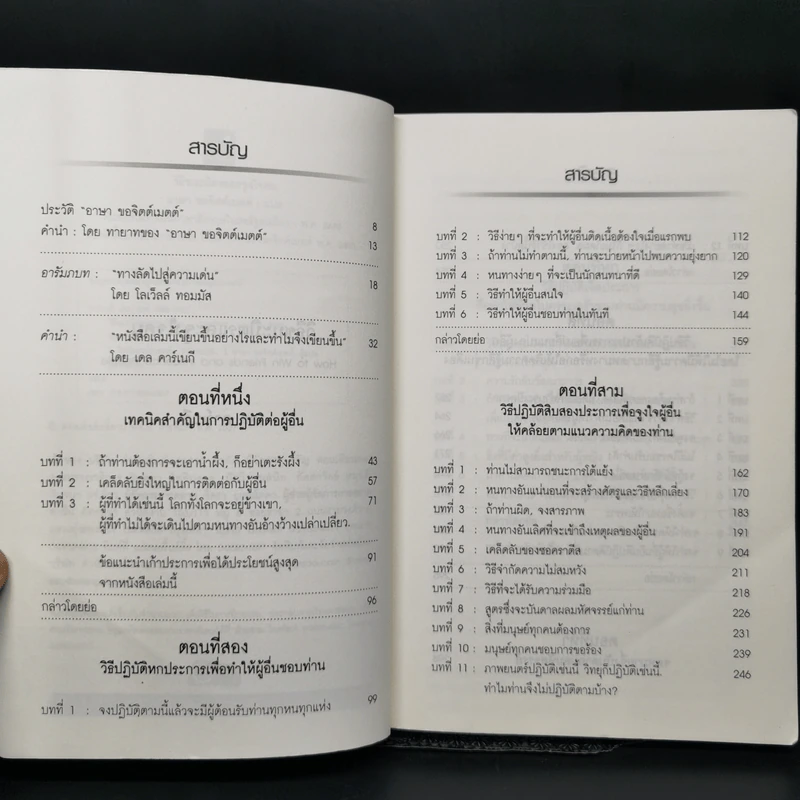 สารบัญ
ประวัติ "อาษา ขอจิตต์เมตต์" 8
คำนำ : โดย ทายาทของ "อาษา ขอจิตต์เมตต์" 13
อารัมภบท : "ทางลัดไปสู่ความเด่น" 18
โดย โลเว็ลล์ ทอมมัส
คำนำ : "หนังสือเล่มนี้เขียนขึ้นอย่างไรและทำไมจึงเขียนขึ้น" 32
โดย เดล คาร์เนกี
ตอนที่หนึ่ง
เทคนิคสำคัญในการปฏิบัติต่อผู้อื่น
บทที่ 1 : ถ้าท่านต้องการจะเอาน้ำผึ้ง, ก็อย่าเตะรังผึ้ง 43
บทที่ 2 : เคล็ดลับยิ่งใหญ่ในการติดต่อกับผู้อื่น 57
บทที่ 3 : ผู้ที่ทำได้เช่นนี้ โลกทั้งโลกจะอยู่ข้างเขา, 71
ผู้ที่ทำไม่ได้จะเดินไปตามหนทางอันอ้างว้างเปล่าเปลี่ยว.
ข้อแนะนำเก้าประการเพื่อได้ประโยชน์สูงสุด 91
จากหนังสือเล่มนี้
กล่าวโดยย่อ 96
ตอนที่สอง
วิธีปฏิบัติหกประการเพื่อทำให้ผู้อื่นชอบท่าน
บทที่ 1 : จงปฏิบัติตามนี้แล้วจะมีผู้ต้อนรับท่านทุกหนทุกแห่ง 99
สารบัญ
บทที่ 2 : วิธีง่ายๆ ที่จะทำให้ผู้อื่นติดเนื้อต้องใจเมื่อแรกพบ 112
บทที่ 3 : ถ้าท่านไม่ทำตามนี้, ท่านจะบ่ายหน้าไปพบความยุ่งยาก 120
บทที่ 4 : หนทางง่ายๆ ที่จะเป็นนักสนทนาที่ดี 129
บทที่ 5 : วิธีทำให้ผู้อื่นสนใจ 140
บทที่ 6 : วิธีทำให้ผู้อื่นชอบท่านในทันที 144
กล่าวโดยย่อ 159
ตอนที่สาม
วิธีปฏิบัติสิบสองประการเพื่อจูงใจผู้อื่น
ให้คล้อยตามแนวความคิดของท่าน
บทที่ 1 : ท่านไม่สามารถชนะการโต้แย้ง 162
บทที่ 2 : หนทางอันแน่นอนที่จะสร้างศัตรูและวิธีหลีกเลี่ยง 170
บทที่ 3 : ถ้าท่านผิด, จงสารภาพ 183
บทที่ 4 : หนทางอันเลิศที่จะเข้าถึงเหตุผลของผู้อื่น 191
บทที่ 5 : เคล็ดลับของซอคราตีส 204
บทที่ 6 : วิธีจำกัดความไม่สมหวัง 211
บทที่ 7 : วิธีที่จะได้รับความร่วมมือ 218
บทที่ 8 : สูตรซึ่งจะบันดาลผลมหัศจรรย์แก่ท่าน 226
บทที่ 9 : สิ่งที่มนุษย์ทุกคนต้องการ 231
บทที่ 10 : มนุษย์ทุกคนชอบการขอร้อง 239
บทที่ 11 : ภาพยนตร์ปฏิบัติเช่นนี้ วิทยุก็ปฏิบัติเช่นนี้. 246
ทำไมท่านจึงไม่ปฏิบัติตามบ้าง?